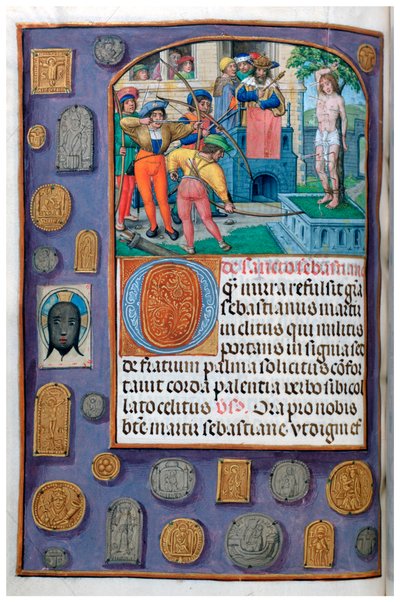 De sancto sebastiano
O q̃ mira refulsit gr̃a
sebastianus martir
inclitus qui militis
portans insignia sed
de fratrum palma solicitus cõfor
tavit corda palentia verbo sibi col
lato celitus Vs̃. Ora pro nobis
bt̃e martir sebastiane ut digni ef